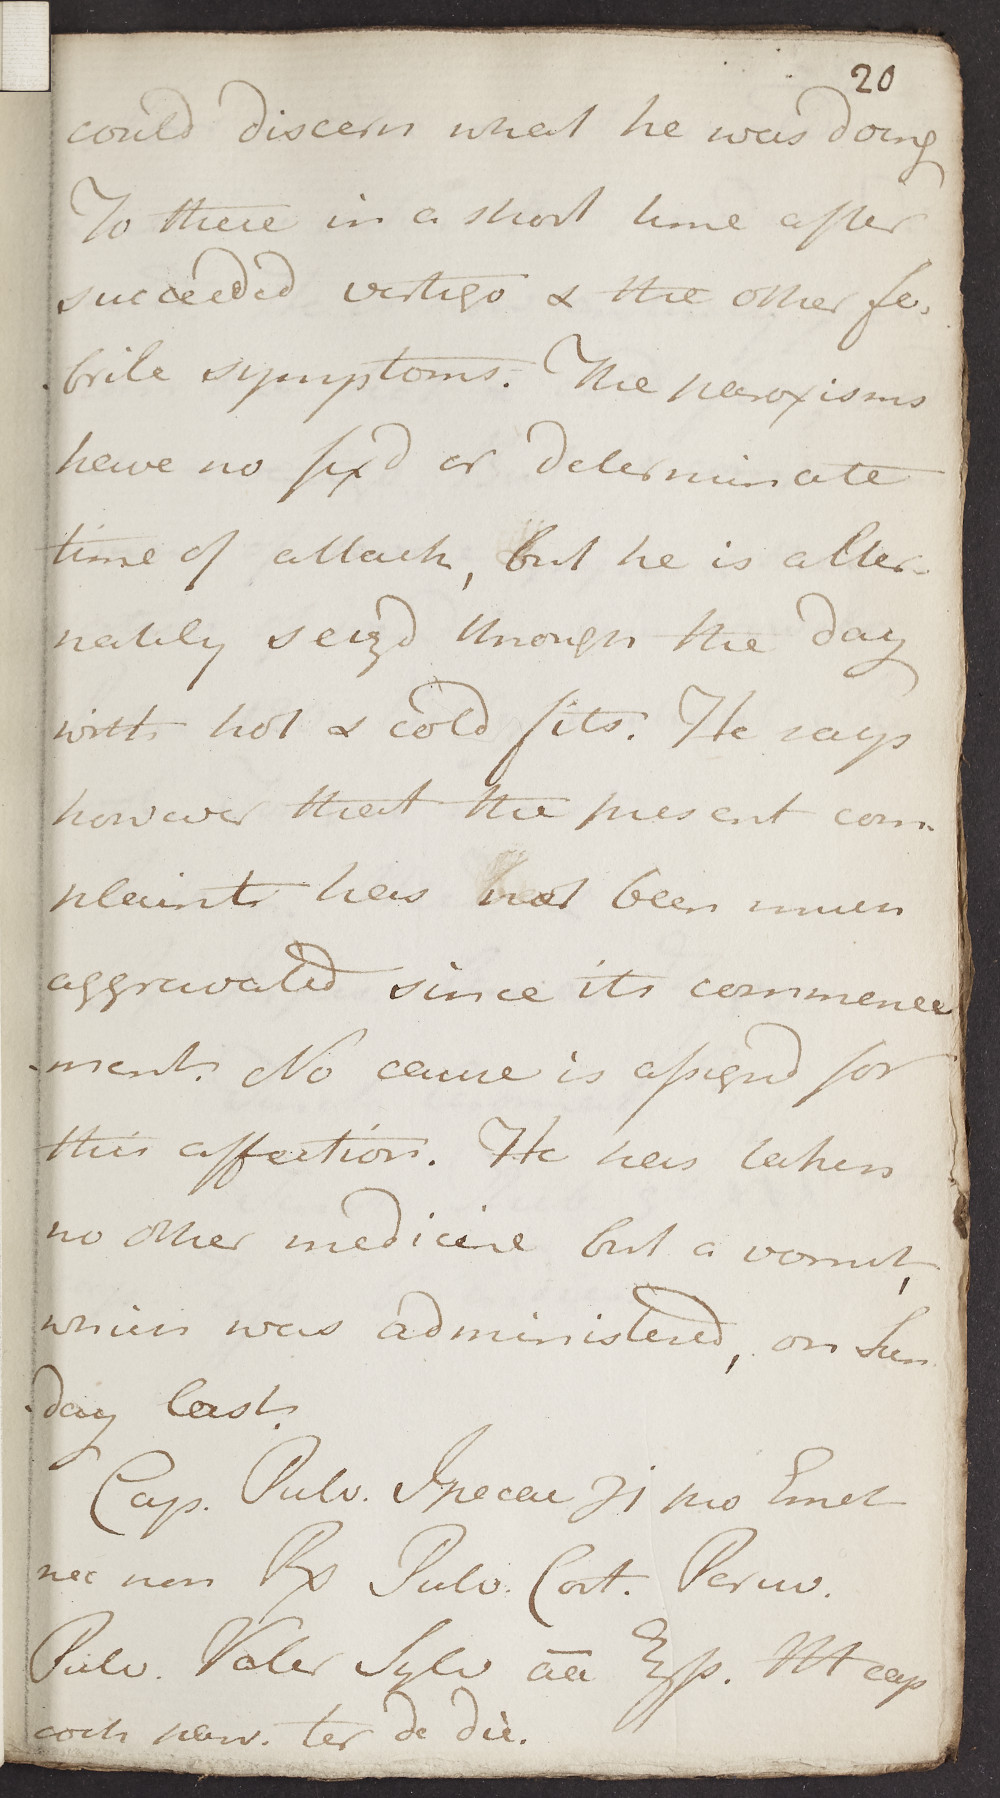 20
could discern what he was doing
To these in a short time after
succeeded vertigo & the other fe-
-brile symptoms. The paroxisms
have no fix'd or determinate
time of attack, but he is alter-
nately seiz'd through the day
with hot & cold fits. He says
however that the present com-
plaint has not been much
aggravated since its commence
-ment. No cause is assignd for
this affection. He has taken
no other medicine but a vomit,
which was administered, on Sun
-day last.
Cap. Pulv. Ipecac ℈i pro Emet
nec non ℞ Pulv. Cort. Peruv.
Pulv. Valer Sylv āā ℥ſs. M cap
coch parv. ter de die.